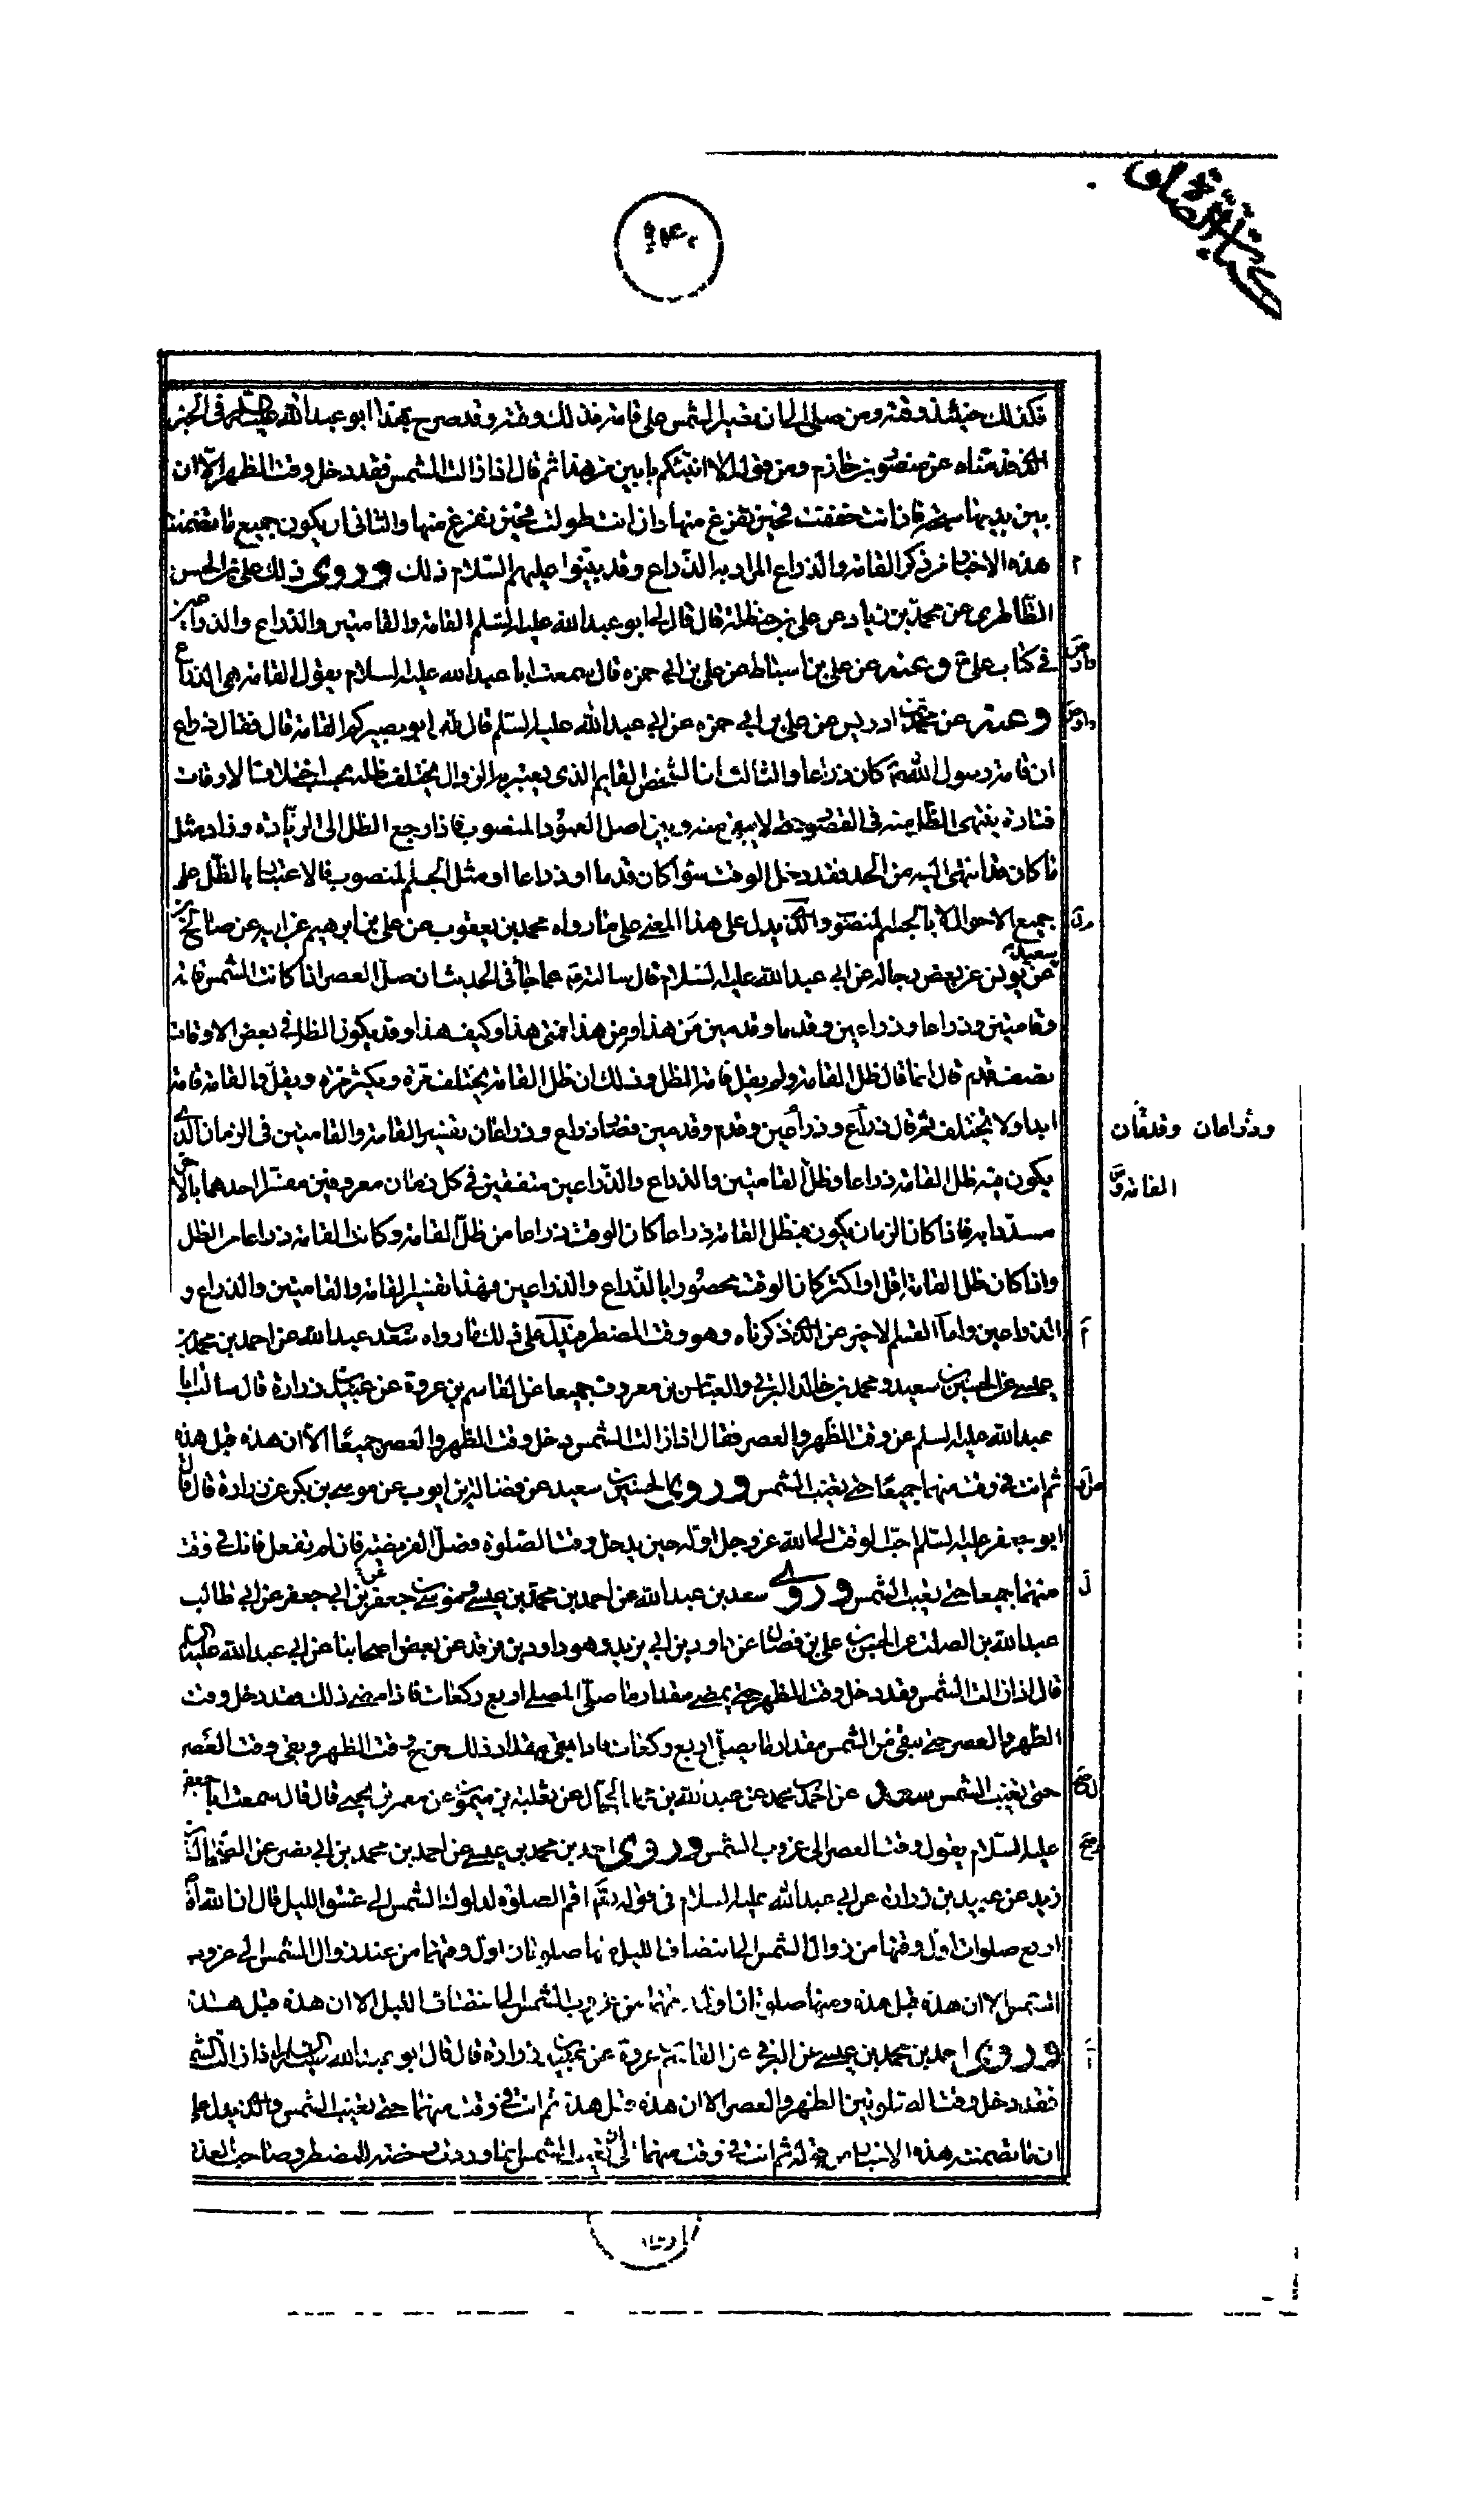 كتاب الصلوة
١٤٠
فكذلك حينئذ وقته ومن صلى الى ان يصير الشمس على قامة فذلك وقته وقد صرح بهذا ابو عبد الله عليه السلم في الخبر
الذي قدمناه عن منصور بن حازم ومن قوله الا انبئكم بابين من هذا ثم قال اذا زالت الشمس فقد دخل وقت الظهر الا ان
بين يديها سبحة فان انت خففت فحين تفرغ منها وان انت طولت فحين تفرغ منها والثاني ان يكون جميع ما تضمنت
هذه الاخبار من ذكر القامة والذراع المراد به الذراع وقد بينوا عليهم السلام ذلك وروى ذلك علي بن الحسن
الطاطري عن محمد بن زياد عن علي بن حنظلة قال قال لي ابو عبد الله عليه السلم القامة والقامتين والذراع والذراعين
في كتاب علي ع وعنه عن علي بن اسباط عن علي بن ابي حمزه قال سمعت ابا عبد الله عليه السلام يقول القامة هي الذراع
وعنه عن محمد بن ادريس عن علي بن ابي حمزه عن ابي عبد الله عليه السلم قال قال له ابو بصير كم القامة قال فقال ذراع
ان قامة رسول الله ص كان ذراعا والثالث ان الشخص القايم الذي يعتبر به الزوال يختلف ظله بحسب اختلاف الاوقات
فتارة ينتهي الظل منه في القصور حتى لا يبقى منه وبين اصل العمود المنصوب فاذا رجع الظل الى الزيادة وزاد مثل
ما كان قد انتهى اليه من الحد فقد دخل الوقت سواء كان قدما او ذراعا او مثل الجسم المنصوب فالاعتبار بالظل على
جميع الاحوال لا بالجسم المنصوب والذي يدل على هذا المعنى على ما رواه محمد بن يعقوب عن علي بن ابرهيم عن ابيه عن صالح بن
سعيد
عن يونس عن بعض رجاله عن ابي عبد الله عليه السلام قال سالته عما جاء في الحديث ان صل العصر اذا كانت الشمس قامة
وقامتين وذراعا وذراعين وقدما وقدمين من هذا ومن هذا فمتى هذا وكيف هذا وقد يكون الظل في بعض الاوقات
نصف قدم قال انما قال ظل القامة ولم يقل قامة الظل وذلك ان ظل القامة يختلف مرة ويكثر مرة ويقل والقامة قامة
ابدا ولا يختلف ثم قال ذراع وذراعين وقدم وقدمين فصار ذراع وذراعان تفسير القامة والقامتين في الزمان الذي
وذراعان وقدمان
يكون فيه ظل القامة ذراعا وظل القامتين والذراع والذراعين متفقين في كل زمان معروفين مفسرا احدهما بالاخر
القامة و
مسددا به فاذا كان الزمان يكون فيه ظل القامة ذراعا كان الوقت ذراعا من ظل القامة وكانت القامة ذراعا من الظل
واذا كان ظل القامة اقل او اكثر كان الوقت محصورا بالذراع والذراعين فهذا تفسير القامة والقامتين والذراع و
الذراعين واما القسم الاخير عن الذي ذكرناه وهو وقت المضطر فيدل على ذلك ما رواه سعد بن عبد الله عن احمد بن محمد بن
عيسى عن الحسين بن سعيد ومحمد بن خالد البرقي والعباس بن معروف جميعا عن القاسم بن عروة عن عبيد بن زرارة قال سالت ابا
عبد الله عليه السلم عن وقت الظهر والعصر فقال اذا زالت الشمس دخل وقت الظهر والعصر جميعا الا ان هذه قبل هذه
ثم انت في وقت منهما جميعا حتى تغيب الشمس وروى الحسين بن سعيد عن فضالة بن ايوب عن موسى بن بكر عن زرارة قال قال
ابو جعفر عليه السلم احب الوقت الى الله عز وجل اوله حين يدخل وقت الصلوة فصل الفريضة فان لم تفعل فانك في وقت
منهما جميعا حتى تغيب الشمس وروى سعد بن عبد الله عن احمد بن محمد بن عيسى وموسى بن جعفر بن ابي جعفر عن ابي طالب
عبد الله بن الصلت عن الحسن بن علي بن فضال عن داود بن ابي يزيد وهو داود بن فرقد عن بعض اصحابنا عن ابي عبد الله عليه السلم
قال اذا زالت الشمس فقد دخل وقت الظهر حتى يمضي مقدار ما صلى المصلي اربع ركعات فاذا مضى ذلك فقد دخل وقت
الظهر والعصر حتى يبقى من الشمس مقدار ما يصلي اربع ركعات فاذا بقي مقدار ذلك فقد خرج وقت الظهر وبقي وقت العصر
حتى تغيب الشمس سعد عن احمد بن محمد عن عبد الله بن محمد الحجال عن ثعلبة بن ميمون عن معمر بن يحيى قال قال سمعت ابا جعفر
عليه السلام يقول وقت العصر الى غروب الشمس وروى احمد بن محمد بن عيسى عن احمد بن محمد بن ابي نصر عن الضحاك بن
زيد عن عبيد بن زرارة عن ابي عبد الله عليه السلام في قوله تعم اقم الصلوة لدلوك الشمس الى غسق الليل قال ان الله افترض
اربع صلوات اول وقتها من زوال الشمس الى انتصاف الليل منها صلوتان اول وقتهما من عند زوال الشمس الى غروب
الشمس الا ان هذه قبل هذه ومنها صلوتان اول وقتهما من غروب الشمس الى انتصاف الليل الا ان هذه قبل هذه
وروى احمد بن محمد بن عيسى عن البرقي عن القاسم بن عروة عن عبيد بن زرارة قال قال ابو عبد الله عليه السلم اذا زالت الشمس
فقد دخل وقت الصلوتين الظهر والعصر الا ان هذه قبل هذه ثم انت في وقت منهما حتى تغيب الشمس والذي يدل على
ان ما تضمنت هذه الاخبار من قوله ثم انت في وقت منهما الى ان تغيب الشمس انما وردت رخصة للمضطر وصاحب العذر